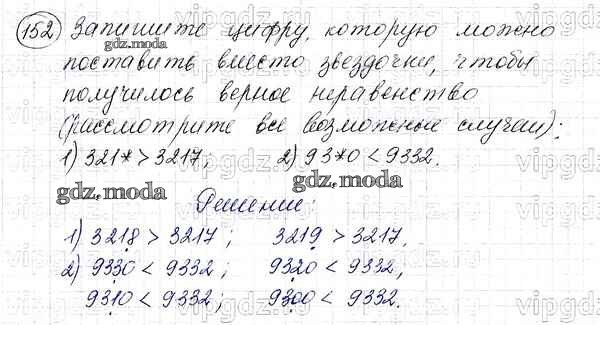 152 Запишите цифру, которую можно
gdz.moda
поставить вместо звездочки, чтобы
получилось верное неравенство
(рассмотрите все возможные случаи):
1) 321* > 3217; 2) 93*0 < 9332.
gdz.moda gdz.moda
Решение:
1) 3218 > 3217; 3219 > 3217,
2) 9330 < 9332; 9320 < 9332,
9310 < 9332; 9300 < 9332.
vipgdz.com